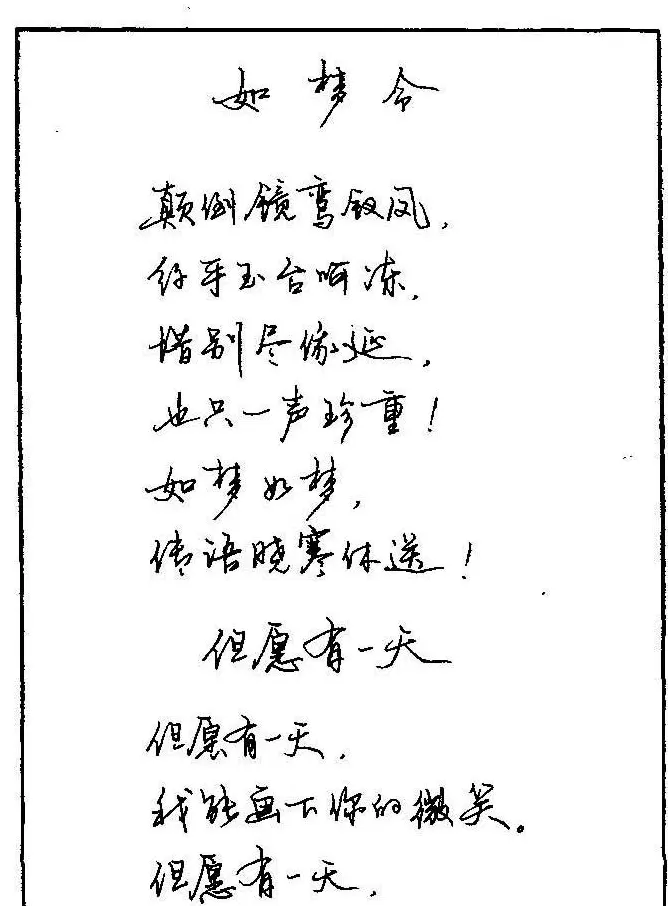 如梦令
颠倒镜鸾钗凤,
纤手玉台呵冻,
惜别尽俄延,
也只一声珍重!
如梦如梦,
传语晓寒休送!
但愿有一天
但愿有一天,
我能画下你的微笑。
但愿有一天,